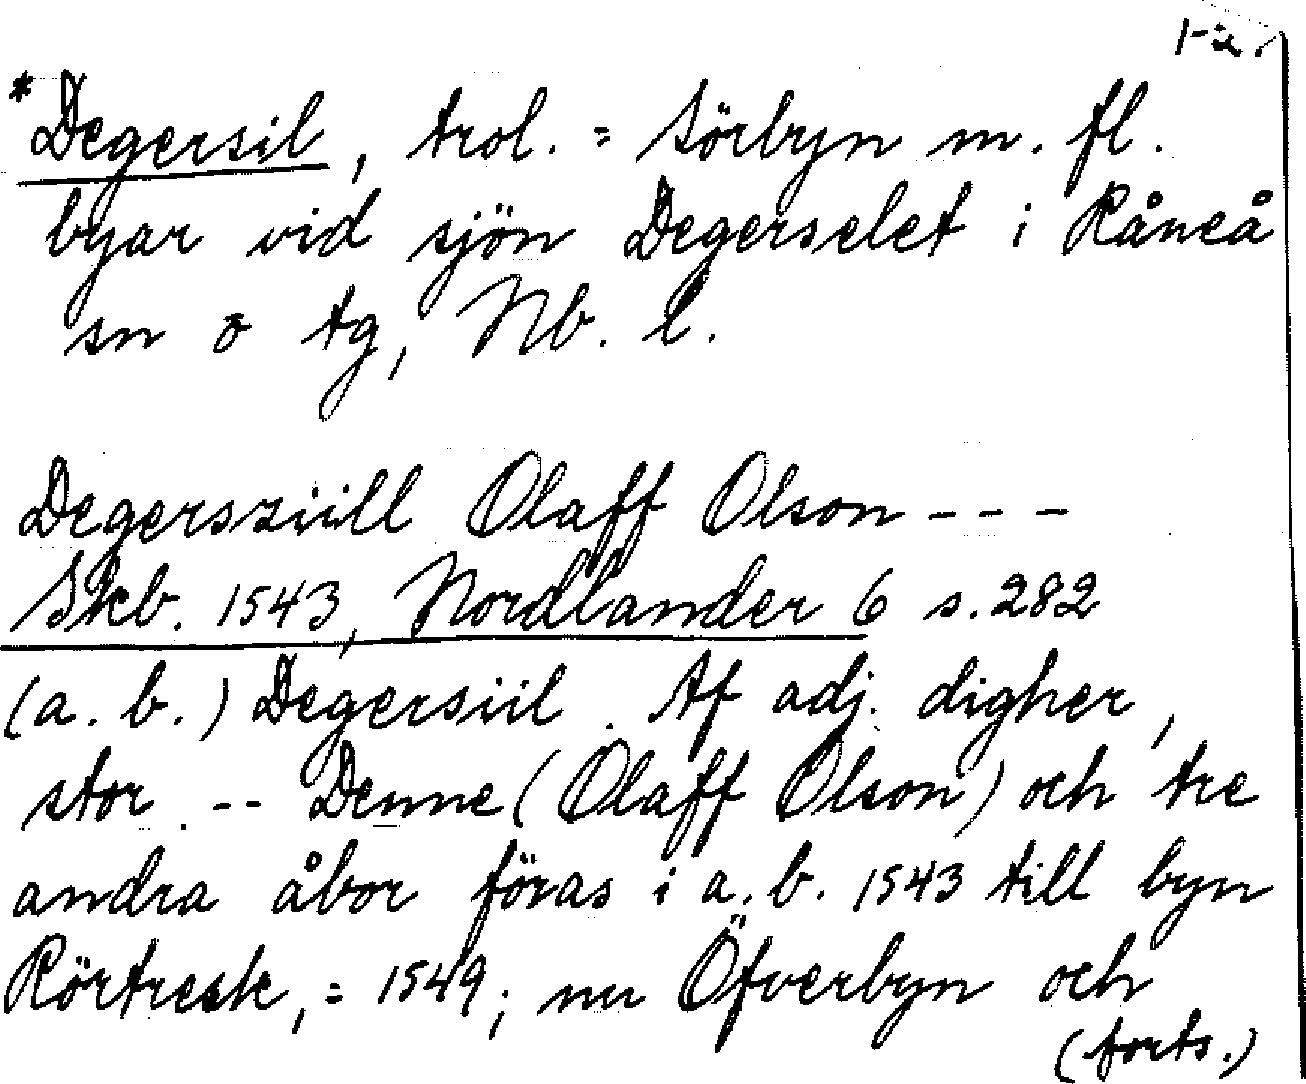 *Degersil, trol. = Sörbyn m. fl.
byar vid sjön Degerselet i Råneå
sn o tg, Nb. l.
Degersziill Olaff Olson - - -
Skb. 1543, Nordlander 6 s. 282
(a. b.) Degersiil. Af adj. digher,
stor. -- Denne (Olaff Olson) och tre
andra åbor föras i a. b. 1543 till byn
Rörtresk, = 1549; nu Öfverbyn och
(forts.)